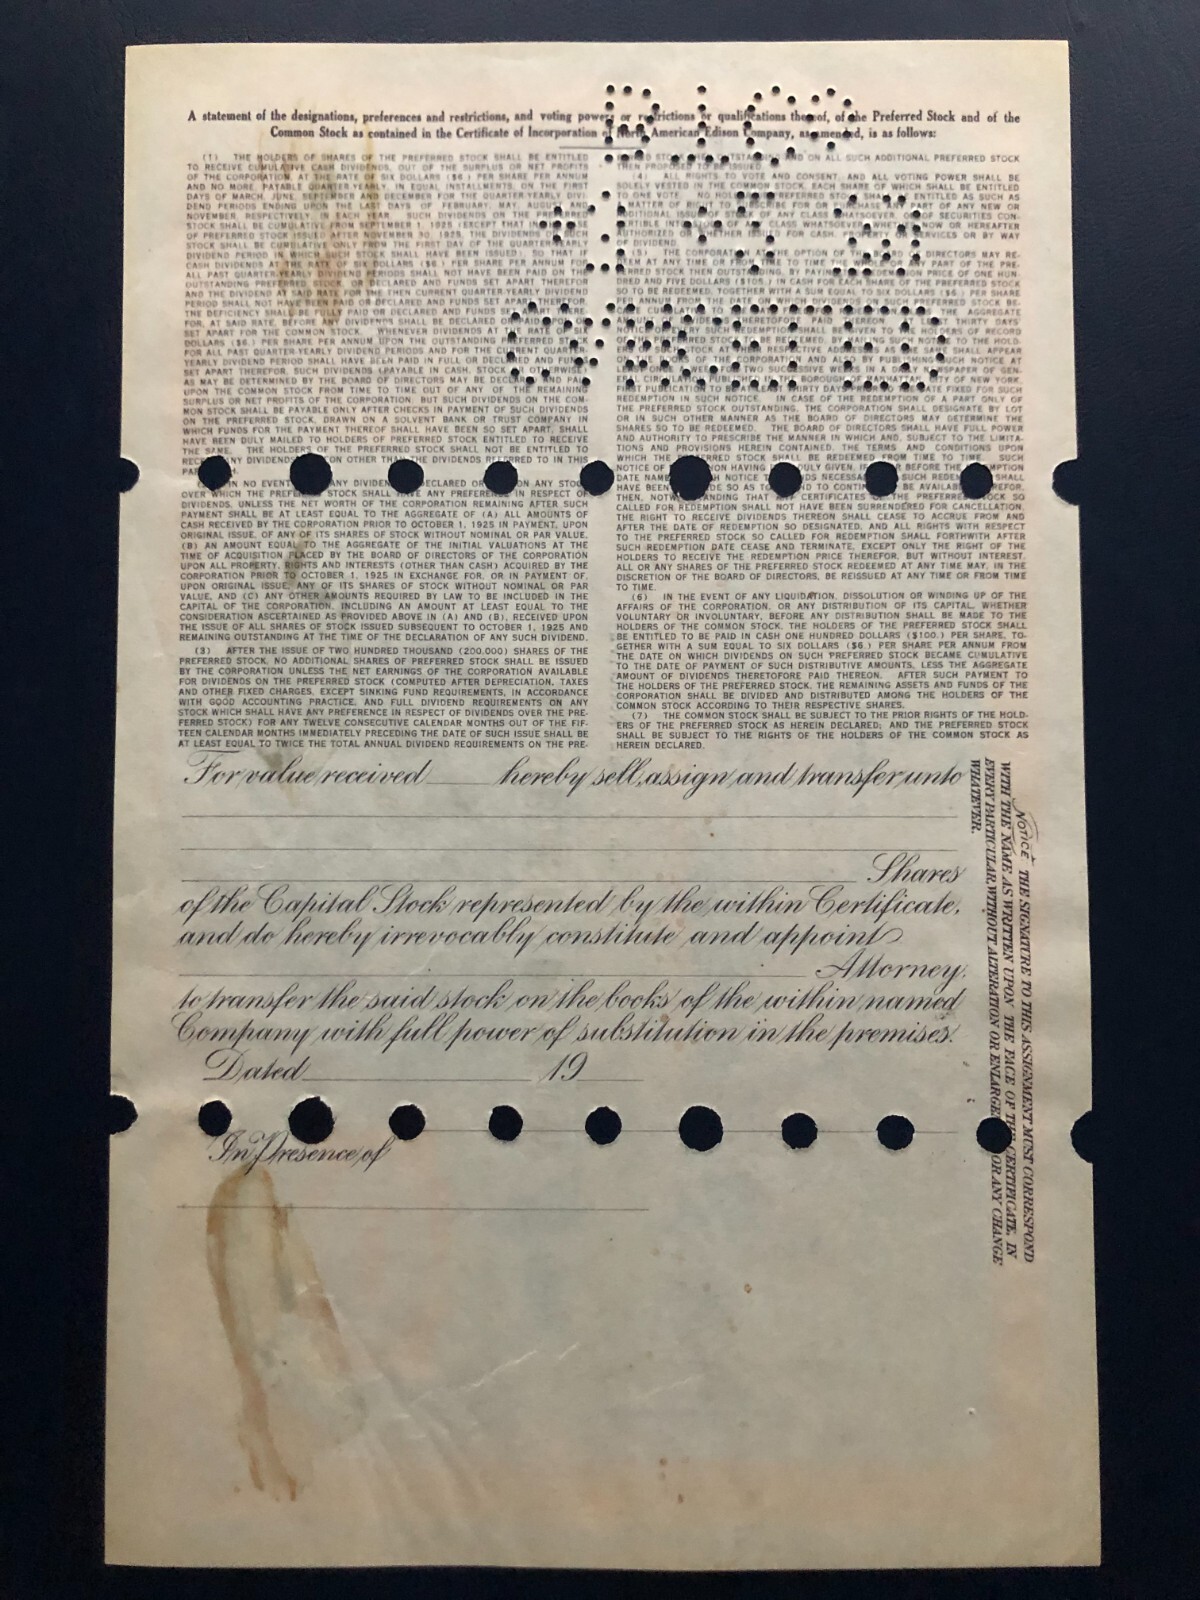 A statement of the designations, preferences and restrictions, and voting powers or restrictions or qualifications thereof, of the Preferred Stock and of the
Common Stock as contained in the Certificate of Incorporation of North American Edison Company, as amended, is as follows:
(1) THE HOLDERS OF SHARES OF THE PREFERRED STOCK SHALL BE ENTITLED
TO RECEIVE CUMULATIVE CASH DIVIDENDS, OUT OF THE SURPLUS OR NET PROFITS
OF THE CORPORATION, AT THE RATE OF SIX DOLLARS ($6.) PER SHARE PER ANNUM
AND NO MORE, PAYABLE QUARTER-YEARLY, IN EQUAL INSTALLMENTS, ON THE FIRST
DAYS OF MARCH, JUNE, SEPTEMBER AND DECEMBER FOR THE QUARTER-YEARLY DIVI-
DEND PERIODS ENDING UPON THE LAST DAYS OF FEBRUARY, MAY, AUGUST AND
NOVEMBER, RESPECTIVELY, IN EACH YEAR. SUCH DIVIDENDS ON THE PREFERRED
STOCK SHALL BE CUMULATIVE FROM SEPTEMBER 1, 1925 (EXCEPT THAT IN CASE
OF PREFERRED STOCK ISSUED AFTER NOVEMBER 30, 1925, THE DIVIDENDS ON SUCH
STOCK SHALL BE CUMULATIVE ONLY FROM THE FIRST DAY OF THE QUARTER-YEARLY
DIVIDEND PERIOD IN WHICH SUCH STOCK SHALL HAVE BEEN ISSUED); SO THAT IF
CASH DIVIDENDS AT THE RATE OF SIX DOLLARS ($6.) PER SHARE PER ANNUM FOR
ALL PAST QUARTER-YEARLY DIVIDEND PERIODS SHALL NOT HAVE BEEN PAID ON THE
OUTSTANDING PREFERRED STOCK, OR DECLARED AND FUNDS SET APART THEREFOR
AND THE DIVIDEND AT SAID RATE FOR THE THEN CURRENT QUARTER-YEARLY DIVIDEND
PERIOD SHALL NOT HAVE BEEN PAID OR DECLARED AND FUNDS SET APART THEREFOR,
THE DEFICIENCY SHALL BE FULLY PAID OR DECLARED AND FUNDS SET APART THERE-
FOR, AT SAID RATE, BEFORE ANY DIVIDENDS SHALL BE DECLARED OR PAID UPON OR
SET APART FOR THE COMMON STOCK. WHENEVER DIVIDENDS AT THE RATE OF SIX
DOLLARS ($6.) PER SHARE PER ANNUM UPON THE OUTSTANDING PREFERRED STOCK
FOR ALL PAST QUARTER-YEARLY DIVIDEND PERIODS AND FOR THE CURRENT QUARTER-
YEARLY DIVIDEND PERIOD SHALL HAVE BEEN PAID IN FULL OR DECLARED AND FUNDS
SET APART THEREFOR, SUCH DIVIDENDS (PAYABLE IN CASH, STOCK OR OTHERWISE)
AS MAY BE DETERMINED BY THE BOARD OF DIRECTORS MAY BE DECLARED, AND PAID
UPON THE COMMON STOCK FROM TIME TO TIME OUT OF ANY OF THE REMAINING
SURPLUS OR NET PROFITS OF THE CORPORATION, BUT SUCH DIVIDENDS ON THE COM-
MON STOCK SHALL BE PAYABLE ONLY AFTER CHECKS IN PAYMENT OF SUCH DIVIDENDS
ON THE PREFERRED STOCK, DRAWN ON A SOLVENT BANK OR TRUST COMPANY IN
WHICH FUNDS FOR THE PAYMENT THEREOF SHALL HAVE BEEN SO SET APART, SHALL
HAVE BEEN DULY MAILED TO HOLDERS OF PREFERRED STOCK ENTITLED TO RECEIVE
THE SAME. THE HOLDERS OF THE PREFERRED STOCK SHALL NOT BE ENTITLED TO
RECEIVE ANY DIVIDENDS THEREON OTHER THAN THE DIVIDENDS REFERRED TO IN THIS
PARAGRAPH.
(2) IN NO EVENT SHALL ANY DIVIDEND BE DECLARED OR PAID ON ANY STOCK
OVER WHICH THE PREFERRED STOCK SHALL HAVE ANY PREFERENCE IN RESPECT OF
DIVIDENDS, UNLESS THE NET WORTH OF THE CORPORATION REMAINING AFTER SUCH
PAYMENT SHALL BE AT LEAST EQUAL TO THE AGGREGATE OF (A) ALL AMOUNTS OF
CASH RECEIVED BY THE CORPORATION PRIOR TO OCTOBER 1, 1925 IN PAYMENT, UPON
ORIGINAL ISSUE, OF ANY OF ITS SHARES OF STOCK WITHOUT NOMINAL OR PAR VALUE,
(B) AN AMOUNT EQUAL TO THE AGGREGATE OF THE INITIAL VALUATIONS AT THE
TIME OF ACQUISITION PLACED BY THE BOARD OF DIRECTORS OF THE CORPORATION
UPON ALL PROPERTY, RIGHTS AND INTERESTS (OTHER THAN CASH) ACQUIRED BY THE
CORPORATION PRIOR TO OCTOBER 1, 1925 IN EXCHANGE FOR, OR IN PAYMENT OF,
UPON ORIGINAL ISSUE, ANY OF ITS SHARES OF STOCK WITHOUT NOMINAL OR PAR
VALUE, AND (C) ANY OTHER AMOUNTS REQUIRED BY LAW TO BE INCLUDED IN THE
CAPITAL OF THE CORPORATION, INCLUDING AN AMOUNT AT LEAST EQUAL TO THE
CONSIDERATION ASCERTAINED AS PROVIDED ABOVE IN (A) AND (B), RECEIVED UPON
THE ISSUE OF ALL SHARES OF STOCK ISSUED SUBSEQUENT TO OCTOBER 1, 1925 AND
REMAINING OUTSTANDING AT THE TIME OF THE DECLARATION OF ANY SUCH DIVIDEND.
(3) AFTER THE ISSUE OF TWO HUNDRED THOUSAND (200,000) SHARES OF THE
PREFERRED STOCK, NO ADDITIONAL SHARES OF PREFERRED STOCK SHALL BE ISSUED
BY THE CORPORATION UNLESS THE NET EARNINGS OF THE CORPORATION AVAILABLE
FOR DIVIDENDS ON THE PREFERRED STOCK (COMPUTED AFTER DEPRECIATION, TAXES
AND OTHER FIXED CHARGES, EXCEPT SINKING FUND REQUIREMENTS, IN ACCORDANCE
WITH GOOD ACCOUNTING PRACTICE, AND FULL DIVIDEND REQUIREMENTS ON ANY
STOCK WHICH SHALL HAVE PREFERENCE IN RESPECT OF DIVIDENDS OVER THE PRE-
FERRED STOCK) FOR ANY TWELVE CONSECUTIVE CALENDAR MONTHS OUT OF THE FIF-
TEEN CALENDAR MONTHS IMMEDIATELY PRECEDING THE DATE OF SUCH ISSUE SHALL BE
AT LEAST EQUAL TO TWICE THE TOTAL ANNUAL DIVIDEND REQUIREMENTS ON THE PRE-
FERRED STOCK THEN OUTSTANDING AND ON ALL SUCH ADDITIONAL PREFERRED STOCK
THEN PROPOSED TO BE ISSUED.
(4) ALL RIGHTS TO VOTE AND CONSENT, AND ALL VOTING POWER SHALL BE
SOLELY VESTED IN THE COMMON STOCK, EACH SHARE OF WHICH SHALL BE ENTITLED
TO ONE VOTE. NO HOLDER OF PREFERRED STOCK SHALL BE ENTITLED AS SUCH AS
A MATTER OF RIGHT TO SUBSCRIBE FOR OR PURCHASE ANY PART OF ANY NEW OR
ADDITIONAL ISSUE OF STOCK OF ANY CLASS WHATSOEVER, OR OF SECURITIES CON-
VERTIBLE INTO STOCK OF ANY CLASS WHATSOEVER, WHETHER NOW OR HEREAFTER
AUTHORIZED OR WHETHER ISSUED FOR CASH, PROPERTY OR SERVICES OR BY WAY
OF DIVIDEND.
(5) THE CORPORATION AT THE OPTION OF THE BOARD OF DIRECTORS MAY RE-
DEEM AT ANY TIME OR FROM TIME TO TIME THE WHOLE OR ANY PART OF THE PRE-
FERRED STOCK THEN OUTSTANDING, BY PAYING THE REDEMPTION PRICE OF ONE HUN-
DRED AND FIVE DOLLARS ($105.) IN CASH FOR EACH SHARE OF THE PREFERRED STOCK
SO TO BE REDEEMED, TOGETHER WITH A SUM EQUAL TO SIX DOLLARS ($6.) PER SHARE
PER ANNUM FROM THE DATE ON WHICH DIVIDENDS ON SUCH PREFERRED STOCK BE-
CAME CUMULATIVE TO THE LESS THE AGGREGATE
AMOUNT OF DIVIDENDS THERETOFORE PAID THEREON. AT LEAST THIRTY DAYS'
NOTICE OF EVERY SUCH REDEMPTION SHALL BE GIVEN TO THE HOLDERS OF RECORD
OF THE STOCK SO TO BE REDEEMED, BY MAILING SUCH NOTICE TO THE HOLD-
ERS OF SUCH STOCK AT THEIR RESPECTIVE ADDRESSES AS THE SAME SHALL APPEAR
ON THE BOOKS OF THE CORPORATION AND ALSO BY PUBLISHING
LEAST ONCE A WEEK FOR TWO SUCCESSIVE WEEKS IN A DAILY NEWSPAPER OF GEN-
ERAL CIRCULATION PUBLISHED IN THE BOROUGH OF MANHATTAN, CITY OF NEW YORK,
FIRST PUBLICATION TO BE AT LEAST THIRTY DAYS PRIOR TO THE DATE FIXED FOR
REDEMPTION IN SUCH NOTICE. IN CASE OF THE REDEMPTION OF A PART ONLY OF
THE PREFERRED STOCK OUTSTANDING, THE CORPORATION SHALL DESIGNATE BY LOT
OR IN SUCH OTHER MANNER AS THE BOARD OF DIRECTORS MAY DETERMINE THE
SHARES SO TO BE REDEEMED. THE BOARD OF DIRECTORS SHALL HAVE FULL POWER
AND AUTHORITY TO PRESCRIBE THE MANNER IN WHICH AND, SUBJECT TO THE LIMITA-
TIONS AND PROVISIONS HEREIN CONTAINED, THE TERMS AND CONDITIONS UPON
WHICH THE PREFERRED STOCK SHALL BE REDEEMED FROM TIME TO TIME. SUCH
NOTICE OF REDEMPTION HAVING BEEN DULY GIVEN, IF ON OR BEFORE THE REDEMPTION
DATE NAMED IN SUCH NOTICE THE FUNDS NECESSARY FOR SUCH REDEMPTION SHALL
HAVE BEEN MADE SO AS TO BE AND TO CONTINUE TO BE AVAILABLE THEREFOR,
THEN, NOTWITHSTANDING THAT ANY CERTIFICATES OF THE PREFERRED STOCK SO
CALLED FOR REDEMPTION SHALL NOT HAVE BEEN SURRENDERED FOR CANCELLATION,
THE RIGHT TO RECEIVE DIVIDENDS THEREON SHALL CEASE TO ACCRUE FROM AND
AFTER THE DATE OF REDEMPTION SO DESIGNATED, AND ALL RIGHTS WITH RESPECT
TO THE PREFERRED STOCK SO CALLED FOR REDEMPTION SHALL FORTHWITH AFTER
SUCH REDEMPTION DATE CEASE AND TERMINATE, EXCEPT ONLY THE RIGHT OF THE
HOLDERS TO RECEIVE THE REDEMPTION PRICE THEREFOR, BUT WITHOUT INTEREST.
ALL OR ANY SHARES OF THE PREFERRED STOCK REDEEMED AT ANY TIME MAY, IN THE
DISCRETION OF THE BOARD OF DIRECTORS, BE REISSUED AT ANY TIME OR FROM TIME
TO TIME.
(6) IN THE EVENT OF ANY LIQUIDATION, DISSOLUTION OR WINDING UP OF THE
AFFAIRS OF THE CORPORATION, OR ANY DISTRIBUTION OF ITS CAPITAL, WHETHER
VOLUNTARY OR INVOLUNTARY, BEFORE ANY DISTRIBUTION SHALL BE MADE TO THE
HOLDERS OF THE COMMON STOCK, THE HOLDERS OF THE PREFERRED STOCK SHALL
BE ENTITLED TO BE PAID IN CASH ONE HUNDRED DOLLARS ($100.) PER SHARE, TO-
GETHER WITH A SUM EQUAL TO SIX DOLLARS ($6.) PER SHARE PER ANNUM FROM
THE DATE ON WHICH DIVIDENDS ON SUCH PREFERRED STOCK BECAME CUMULATIVE
TO THE DATE OF PAYMENT OF SUCH DISTRIBUTIVE AMOUNTS, LESS THE AGGREGATE
AMOUNT OF DIVIDENDS THERETOFORE PAID THEREON. AFTER SUCH PAYMENT TO
THE HOLDERS OF THE PREFERRED STOCK, THE REMAINING ASSETS AND FUNDS OF THE
CORPORATION SHALL BE DIVIDED AND DISTRIBUTED AMONG THE HOLDERS OF THE
COMMON STOCK ACCORDING TO THEIR RESPECTIVE SHARES.
(7) THE COMMON STOCK SHALL BE SUBJECT TO THE PRIOR RIGHTS OF THE HOLD-
ERS OF THE PREFERRED STOCK AS HEREIN DECLARED; AND THE PREFERRED STOCK
SHALL BE SUBJECT TO THE RIGHTS OF THE HOLDERS OF THE COMMON STOCK AS
HEREIN DECLARED.
For value received hereby sell, assign and transfer unto
Shares
of the Capital Stock represented by the within Certificate,
and do hereby irrevocably constitute and appoint
Attorney.
to transfer the said stock on the books of the within named
Company with full power of substitution in the premises.
Dated 19
In Presence of
NOTICE THE SIGNATURE TO THIS ASSIGNMENT MUST CORRESPOND
WITH THE NAME AS WRITTEN UPON THE FACE OF THE CERTIFICATE, IN
EVERY PARTICULAR, WITHOUT ALTERATION OR ENLARGEMENT OR ANY CHANGE
WHATEVER.